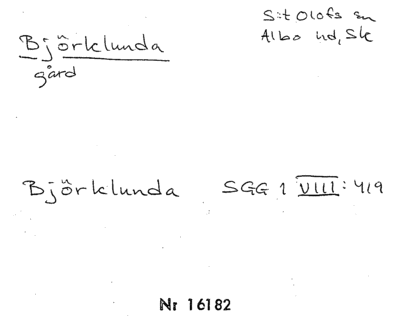 S:t Olofs sn
Albo hd, Sk
Björklunda
gård
Björklunda SGG 1 VIII: 419
Nr 16182